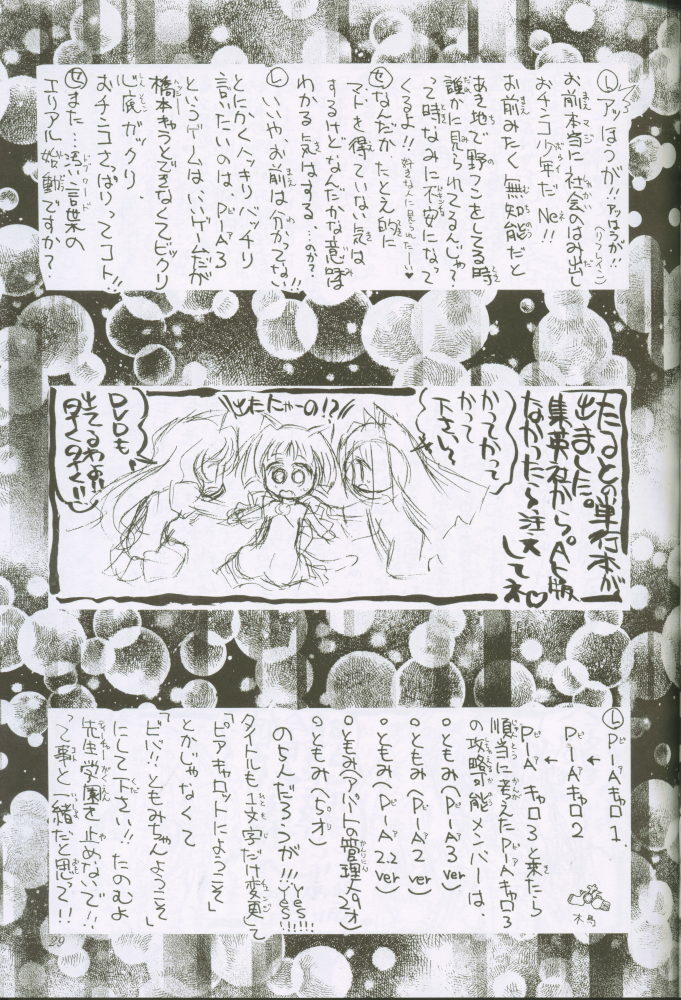 し アッはうが!! アッはうが!! (リフレイン)
お前本当に社会のはみ出し
おチンコ少年だNe!!
お前みたく無知能だと
あき地で野グソをしてる時
誰かに見られてるんじゃ?
って時なみに不安になって
くるよ!! 好きな人に見られたー♥
せ なんだか、たとえ的に
マトを得ていない気は
するけどなんだかな意味は
わかる気はする…のか?
し いいや、お前は分かってない!!
とにかくハッキリバッチリ
言いたいのは、P-A3
というゲームはいいゲームだが
橋本きゅうどきなくてビックリ
心底ガックリ
おチンコさっぱりってコト!!
せ また…汚い言葉の
エリアル始動ですか?
たるとの単行本が
出ました。
集英社から。A5版
なかったら注文
してネ♡
かってかって
かって
下さい〜
出たにゃーの!?
DVDも
出てるわよ!!
早く早く!!
し P-Aキャロ1.
↓
P-Aキャロ2
↓
P-Aキャロ3と来たら
順当に考えたP-Aキャロ3
の攻略可能メンバーは、
○ともみ(P-A3ver)
○ともみ(P-A2ver)
○ともみ(P-A2.2ver)
○ともみ(アパートの管理人29才)
○ともみ(5才)
のちんだろうが!!! yes!! yes!!!
タイトルも1文字だけ変更して
「ピアキャロットにようこそ」
とかじゃなくて
「ピバ!!ともみちゃんようこそ」
にして下さい!!たのむよ
先生学園を止めないで!!
って事と一緒だと思って!!
29